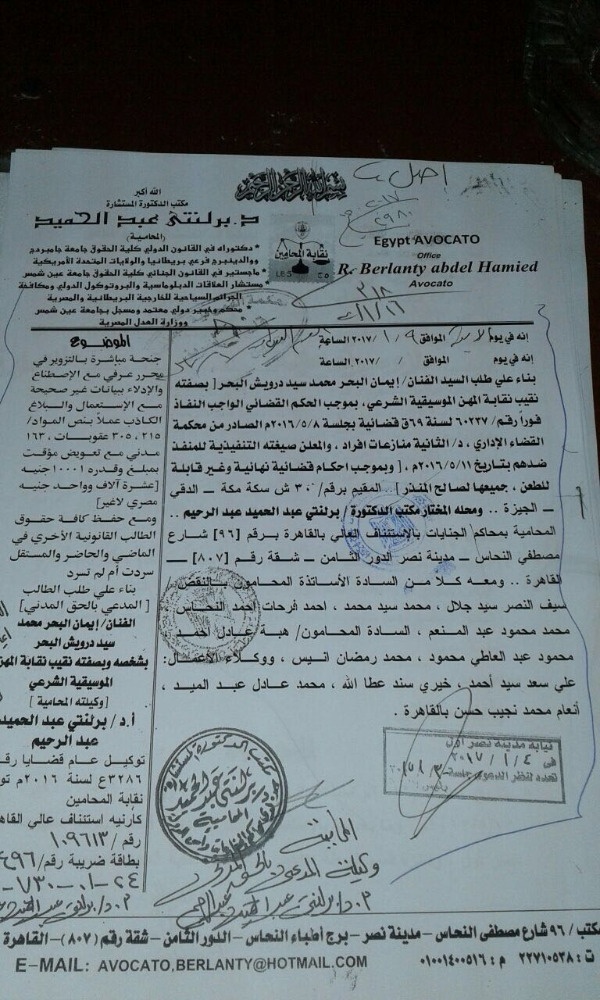 بسم الله الرحمن الرحيم
الله أكبر
مكتب الدكتورة المستشارة
د.برلنتى عبد الحميد
(المحامية)
* دكتوراه في القانون الدولي كلية الحقوق جامعة جامبردج
ووالدينبرج فرعي بريطانيا والولايات المتحدة الأمريكية
* ماجستير في القانون الجنائي كلية الحقوق جامعة عين شمس
* مستشار العلاقات الدبلوماسية والبروتوكول الدولي ومكافحة
الجرائم السياحية للخارجية البريطانية والمصرية
* محكم وخبير دولي معتمد ومسجل بجامعة عين شمس
ووزارة العدل المصرية
نقابة المحامين
اصل
Egypt AVOCATO
Office
R. Berlanty abdel Hamied
Avocato
الموضوع
جنحة مباشرة بالتزوير في
محرر عرفي مع الإصطناع
والإدلاء بيانات غير صحيحة
مع الإستعمال والبلاغ
الكاذب عملاً بنص المواد/
٢١٥ ، ٣٠٥ عقوبات ، ١٦٣
مدني مع تعويض مؤقت
بمبلغ وقدره ١٠٠٠١ جنيه
[عشرة آلاف وواحد جنيه
مصري لاغير]
ومع حفظ كافة حقوق
الطالب القانونية الأخري في
الماضي والحاضر والمستقل
سردت أم لم تسرد
بناء علي طلب الطالب
[ المدعي بالحق المدني]
الفنان/ إيمان البحر محمد
سيد درويش البحر
بشخصه وبصفته نقيب نقابة المهن
الموسيقية الشرعي
[ وكيلته المحامية ]
أ.د/ برلنتي عبد الحميد
عبد الرحيم
توكيل عام قضايا رقم
٣٢٨٦ع لسنة ٢٠١٦م
نقابة المحامين
كارنيه استئناف عالي القاهرة
رقم / ١٠٩٦١٣
بطاقة ضريبية رقم/
إنه في يوم الموافق ٩ / ١ /٢٠١٧ الساعة
إنه في يوم الموافق / /٢٠١٧ الساعة
بناء علي طلب السيد الفنان/ إيمان البحر محمد سيد درويش البحر [ بصفته
نقيب نقابة المهن الموسيقية الشرعي، بموجب الحكم القضائي الواجب النفاذ
فوراً رقم/ ٦٠٢٣٧ لسنة ٦٩ق قضائية بجلسة ٢٠١٦/٥/٨م الصادر من محكمة
القضاء الإداري ، د/ الثانية منازعات افراد ، والمعلن صيغته التنفيذية للمنفذ
ضدهم بتاريخ ٢٠١٦/٥/١١م ، [ وبموجب احكام قضائية نهائية وغير قابلة
للطعن ، جميعها لصالح المنذر] . المقيم برقم/ ٣٠ ش سكة مكة – الدقي
– الجيزة . . ومحله المختار مكتب الدكتورة / برلنتي عبد الحميد عبد الرحيم . .
المحامية بمحاكم الجنايات بالإستئناف العالي بالقاهرة برقم [٩٦] شارع
مصطفي النحاس – مدينة نصر الدور الثامن – شقة رقم [٨٠٧] –
القاهرة . . ومعه كلا من السادة الأساتذة المحامون بالنقض/
سيف النصر سيد جلال ، محمد سيد محمد ، احمد فرحات احمد النحاس
محمد محمود عبد المنعم ، السادة المحامون/ هبة عادل احمد
محمود عبد العاطي محمود ، محمد رمضان انيس ، ووكلاء الأعمال:
علي سعد سيد أحمد ، خيري سند عطا الله ، محمد عادل عبد الميد ،
أنعام محمد نجيب حسن بالقاهرة .
نيابة مدينة نصر أول
فى ٤ / ١ / ٢٠١٧
المحامية
وكيلة المدعى بالحق المدنى
م.د/ برلنتى عبد الحميد عبد الرحيم
مكتب/ ٩٦ شارع مصطفى النحاس – مدينة نصر – برج أطباء النحاس – الدور الثامن – شقة رقم (٨٠٧) – القاهرة
ت : ٢٢٧١٠٥٣٨ م : ٠١٠٠١٤٠٠٥١٦
E-MAIL: AVOCATO,BERLANTY@HOTMAIL.COM